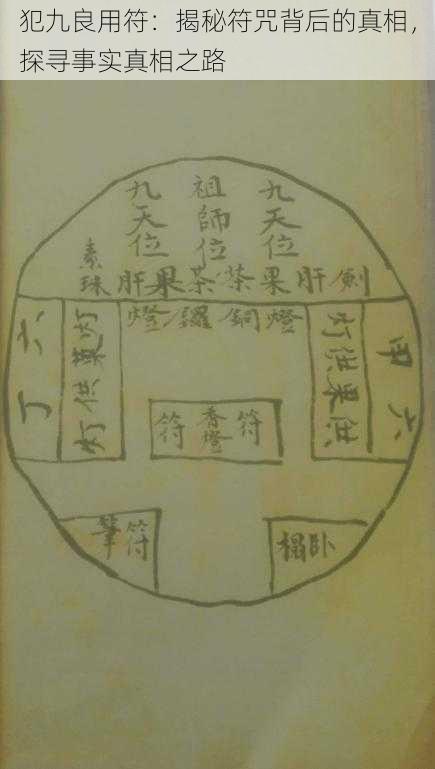 犯九良用符：揭秘符咒背后的真相，
探寻事实真相之路
九天位
祖師位
九天位
素珠肝果茶茶果肝劍
燈鑼銅燈
六丁
灯供菓灯
灯供果供
六甲
符
香燈
符
筆符
榻卧